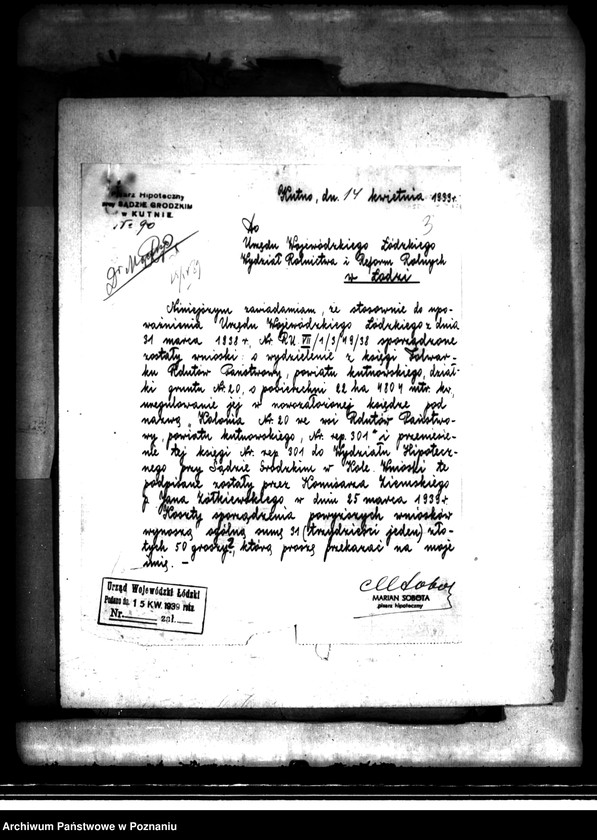 Pisarz Hipoteczny
przy SĄDZIE GRODZKIM
w KUTNIE
Nr 90
Kutno, dn. 14 kwietnia 1939 r.
3
Do
Urzędu Wojewódzkiego Łódzkiego
Wydział Rolnictwa i Reform Rolnych
w Łodzi
Niniejszym zawiadamiam, że stosownie do upo-
ważnienia Urzędu Wojewódzkiego Łódzkiego z dnia
31 marca 1938 r. Nr. RU. VII/1/3/19/38 sporządzone
zostały wnioski: o wydzielenie z księgi Folwar-
ku Rdutów Państwowy, powiatu kutnowskiego, dział-
ki gruntu Nr. 20, o powierzchni 22 ha 4804 mtr. kw,
uregulowanie jej w nowozałożonej księdze pod
nazwą „Kolonia Nr. 20 we wsi Rdutów Państwo-
wy, powiatu kutnowskiego, Nr. rep. 301" i przeniesie-
nie tej księgi Nr. rep. 301 do Wydziału Hipotecz-
nego przy Sądzie Grodzkim w Kole. Wnioski te
podpisane zostały przez Komisarza Ziemskiego
p. Jana Żółkiewskiego w dniu 25 marca 1939 r.
Koszty sporządzenia powyższych wniosków
wynoszą ogólną sumę 31 (trzydzieści jeden) zło-
tych 50 groszy, którą proszę przekazać na moje
imię. –
Urząd Wojewódzki Łódzki
Podano dn. 15 KW. 1939 roku
Nr. zał.
MSobota
MARIAN SOBOTA
pisarz hipoteczny
Archiwum Państwowe w Poznaniu